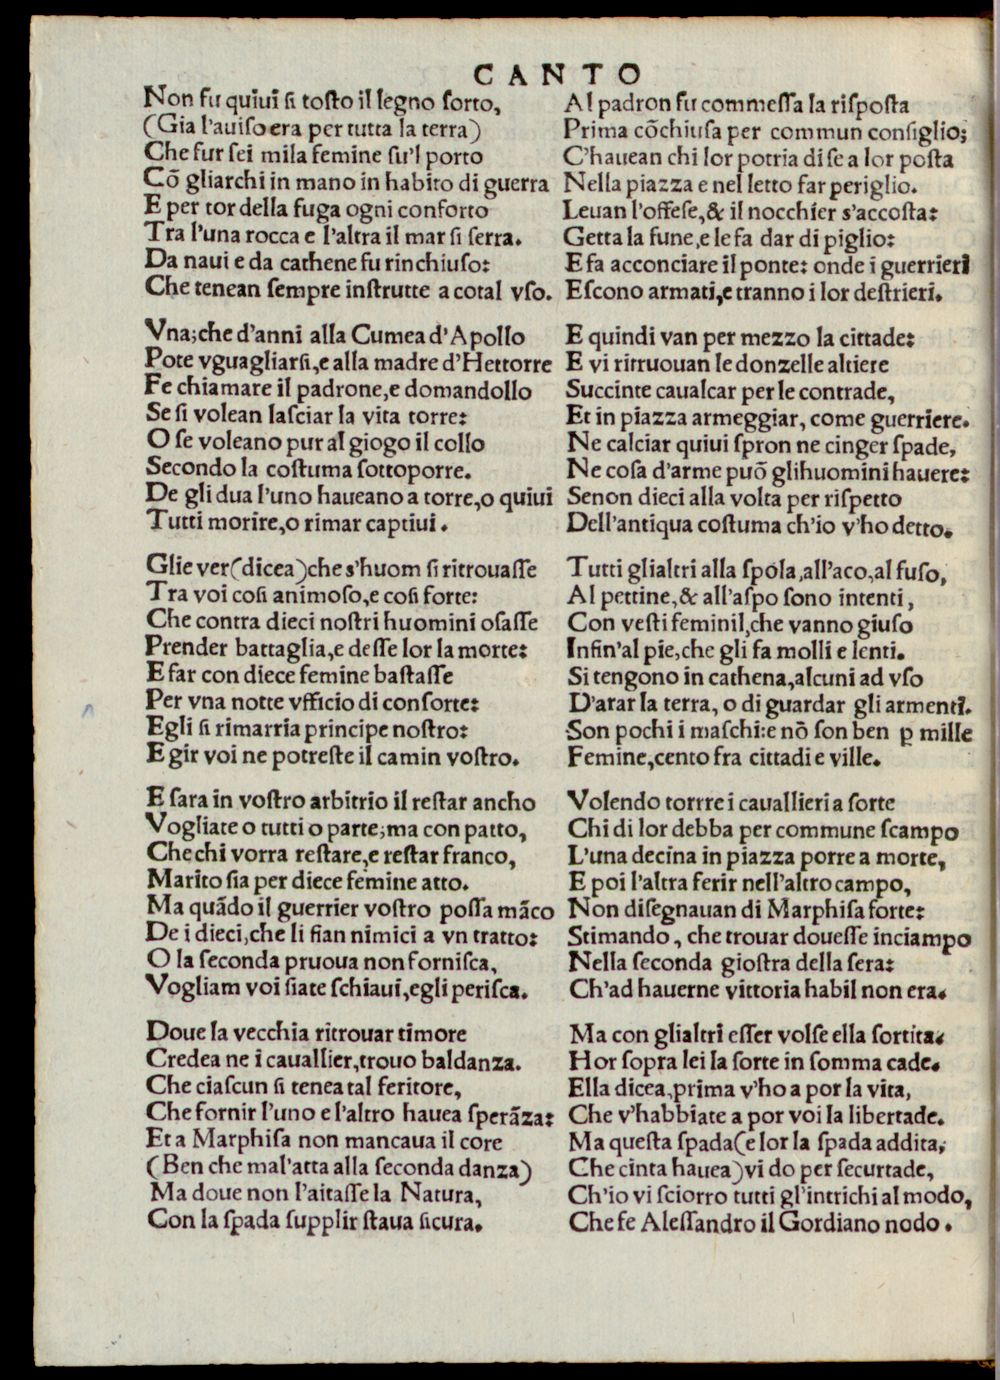 CANTO
Non fu quiui si tosto il legno sorto,
(Gia l'auiso era per tutta la terra)
Che fur sei mila femine su'l porto
Cõ gliarchi in mano in habito di guerra
E per tor della fuga ogni conforto
Tra l'una rocca e l'altra il mar si serra.
Da naui e da cathene fu rinchiuso:
Che tenean sempre instrutte a cotal vso.
Vna; che d'anni alla Cumea d'Apollo
Pote vguagliarsi, e alla madre d'Hettorre
Fe chiamare il padrone, e domandollo
Se si volean lasciar la vita torre:
O se voleano pur al giogo il collo
Secondo la costuma sottoporre.
De gli dua l'uno haueano a torre, o quiui
Tutti morire, o rimar captiui.
Glie ver (dicea) che s'huom si ritrouasse
Tra voi cosi animoso, e cosi forte:
Che contra dieci nostri huomini osasse
Prender battaglia, e desse lor la morte:
E far con diece femine bastasse
Per vna notte vfficio di consorte:
Egli si rimarria principe nostro:
E gir voi ne potreste il camin vostro.
E sara in vostro arbitrio il restar ancho
Vogliate o tutti o parte; ma con patto,
Che chi vorra restare, e restar franco,
Marito sia per diece femine atto.
Ma quãdo il guerrier vostro possa mãco
De i dieci, che li fian nimici a vn tratto:
O la seconda pruoua non fornisca,
Vogliam voi siate schiaui, egli perisca.
Doue la vecchia ritrouar timore
Credea ne i cauallier, trouo baldanza.
Che ciascun si tenea tal feritore,
Che fornir l'uno e l'altro hauea sperãza:
Et a Marphisa non mancaua il core
(Ben che mal'atta alla seconda danza)
Ma doue non l'aitasse la Natura,
Con la spada supplir staua sicura.
Al padron fu commessa la risposta
Prima cõchiusa per commun consiglio;
C'hauean chi lor potria di se a lor posta
Nella piazza e nel letto far periglio.
Leuan l'offese, & il nocchier s'accosta:
Getta la fune, e le fa dar di piglio:
E fa acconciare il ponte: onde i guerrieri
Escono armati, e tranno i lor destrieri.
E quindi van per mezzo la cittade:
E vi ritruouan le donzelle altiere
Succinte caualcar per le contrade,
Et in piazza armeggiar, come guerriere.
Ne calciar quiui spron ne cinger spade,
Ne cosa d'arme puõ glihuomini hauere:
Senon dieci alla volta per rispetto
Dell'antiqua costuma ch'io v'ho detto.
Tutti glialtri alla spola, all'aco, al fuso,
Al pettine, & all'aspo sono intenti,
Con vesti feminil, che vanno giuso
Infin'al pie, che gli fa molli e lenti.
Si tengono in cathena, alcuni ad vso
D'arar la terra, o di guardar gli armenti.
Son pochi i maschi: e nõ son ben ꝑ mille
Femine, cento fra cittadi e ville.
Volendo torrre i cauallieri a sorte
Chi di lor debba per commune scampo
L'una decina in piazza porre a morte,
E poi l'altra ferir nell'altro campo,
Non disegnauan di Marphisa forte:
Stimando, che trouar douesse inciampo
Nella seconda giostra della sera:
Ch'ad hauerne vittoria habil non era.
Ma con glialtri esser volse ella sortita:
Hor sopra lei la sorte in somma cade.
Ella dicea, prima v'ho a por la vita,
Che v'habbiate a por voi la libertade.
Ma questa spada (e lor la spada addita,
Che cinta hauea) vi do per securtade,
Ch'io vi sciorro tutti gl'intrichi al modo,
Che fe Alessandro il Gordiano nodo.